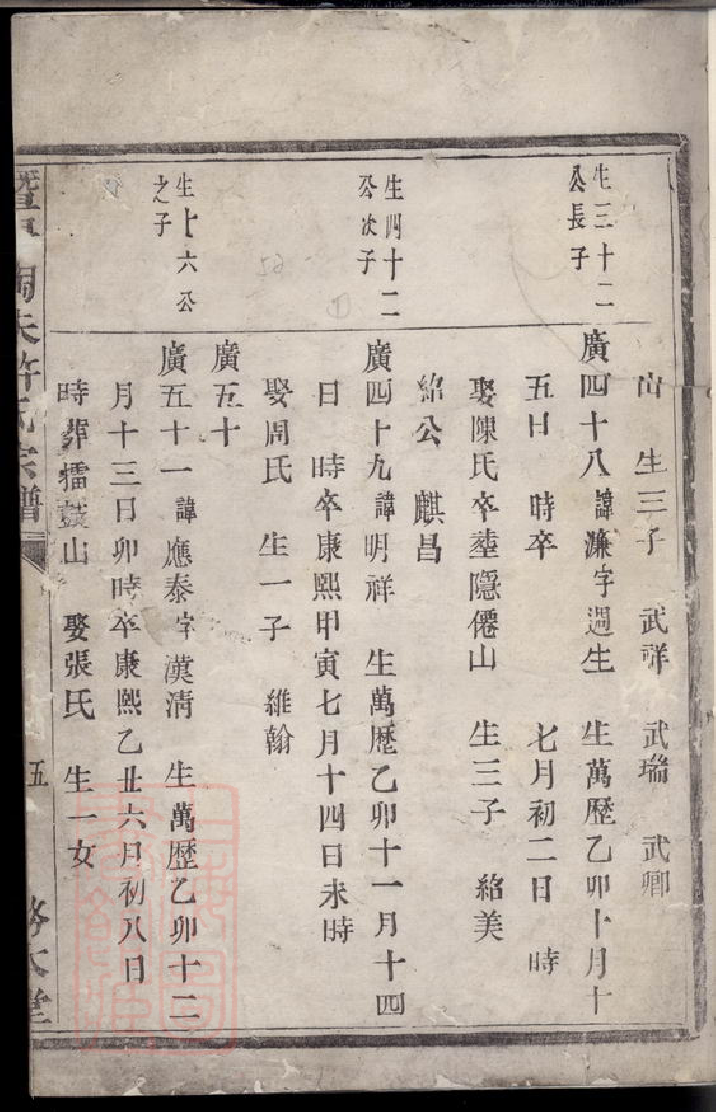 山 生三子 武祥 武瑞 武卿
生三十二
公長子
廣四十八 諱濂字遇生 生萬歷乙卯十月十
五日 時卒 七月初二日 時
娶陳氏卒塟隱僊山 生三子 紹美
紹公 麒昌
生四十二
公次子
廣四十九 諱明祥 生萬歷乙卯十一月十四
日 時卒康熙甲寅七月十四日未時
娶周氏 生一子 維翰
廣五十
生七六公
之子
廣五十一 諱應泰字漢清 生萬歷乙卯十二
月十三日卯時卒康熙乙丑六月初八日
時葬擂鼓山 娶張氏 生一女
暨 宗譜
五